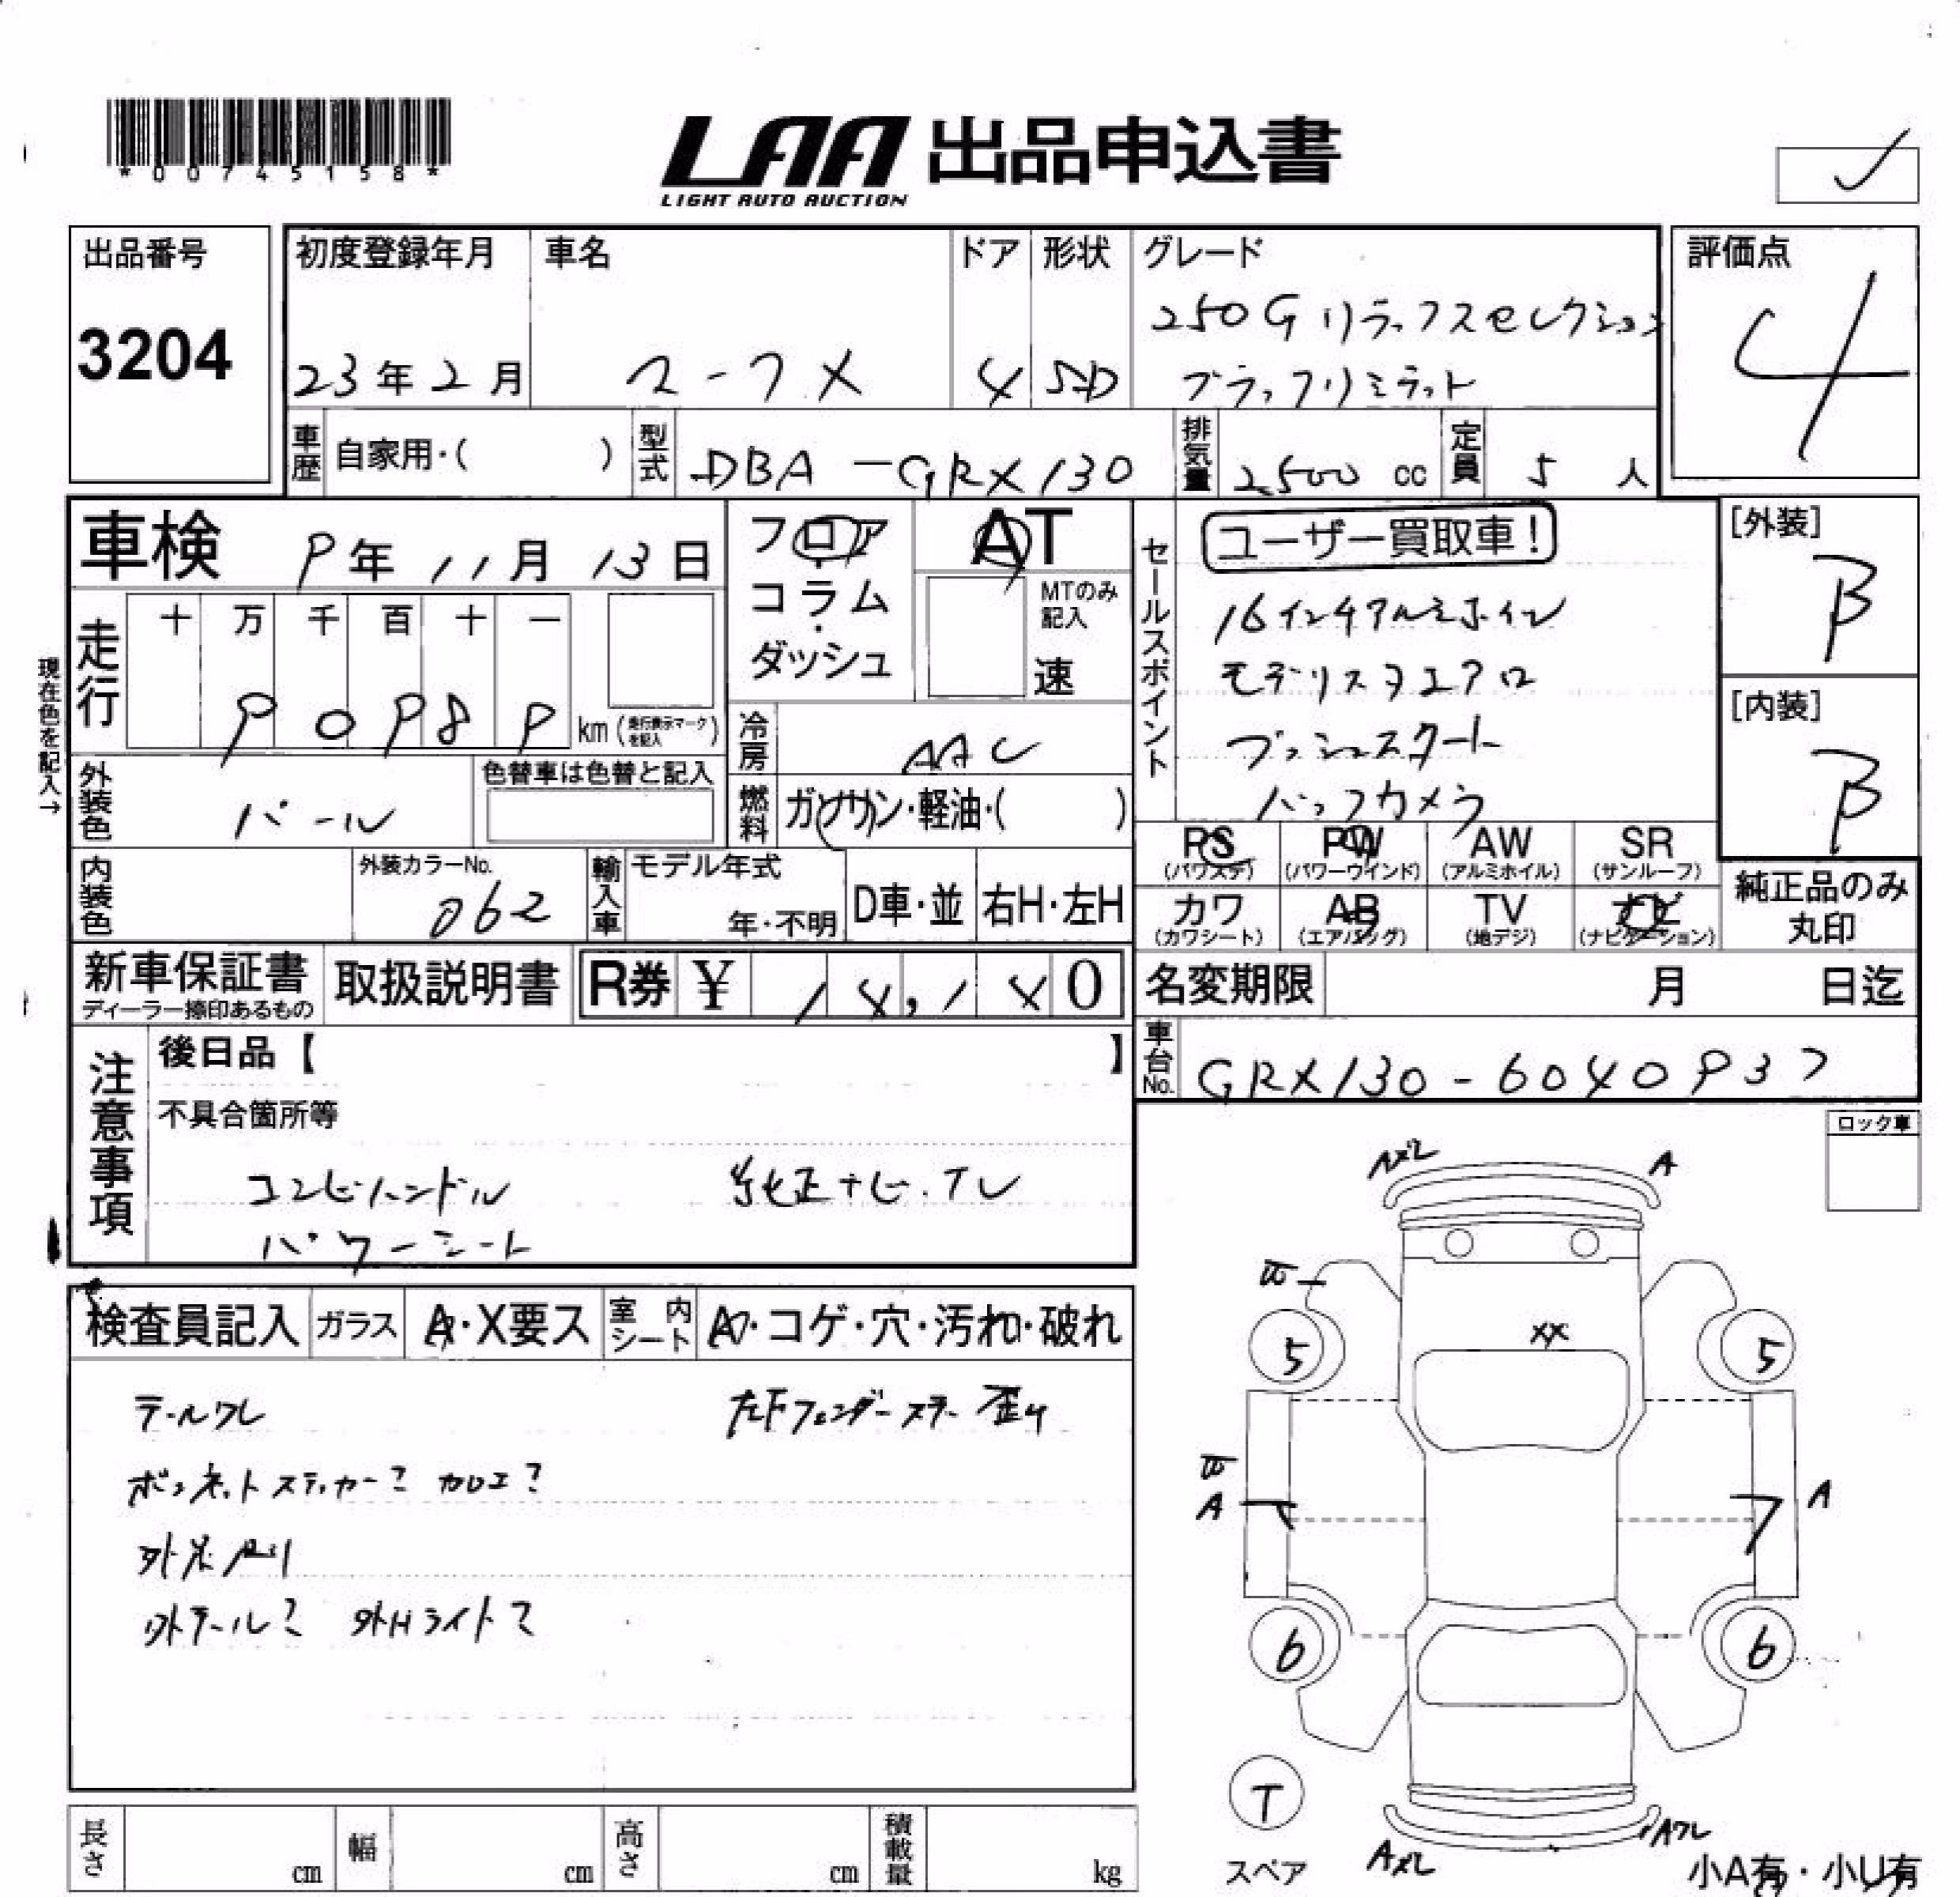 *00745158*
LAA 出品申込書
LIGHT AUTO AUCTION
出品番号
3204
初度登録年月
23年2月
車名
マークX
ドア
4
形状
SD
グレード
250G リラックスセレクション
ブラックリミテッド
評価点
4
車歴 自家用・( )
型式 DBA-GRX130
排気量 2,500 cc
定員 5 人
車検 9年11月13日
フロア・コラム・ダッシュ
AT
MTのみ記入
速
セールスポイント
ユーザー買取車!
16インチアルミホイル
モデリスタエアロ
プッシュスタート
バックカメラ
[外装]
B
[内装]
B
現在色を記入→
走行
十 万 千 百 十 一
9 0 9 8 9 km (走行表示マークを記入)
冷房 AAC
外装色 パール
色替車は色替と記入
燃料 ガソリン・軽油・( )
PS (パワステ)
PW (パワーウインド)
AW (アルミホイル)
SR (サンルーフ)
カワ (カワシート)
AB (エアバッグ)
TV (地デジ)
ナビ (ナビゲーション)
純正品のみ丸印
内装色
外装カラーNo.
062
輸入車
モデル年式
年・不明
D車・並
右H・左H
新車保証書
ディーラー捺印あるもの
取扱説明書
R券 ¥ 14,140
名変期限 月 日迄
車台No. GRX130-6040937
注意事項
後日品【 】
不具合箇所等
コンビハンドル 純正ナビ.TV
パワーシート
ロック車
検査員記入
ガラス A・X要ス
室内シート
・コゲ・穴・汚れ・破れ
テールワレ
左Fフェンダーステー歪み
ボンネットステッカー? 加工?
外テール? 外Hライト?
A
A
XX
5
5
A
A
6
6
T
スペア
Aワレ
小A有・小U有
長さ cm
幅 cm
高さ cm
積載量 kg